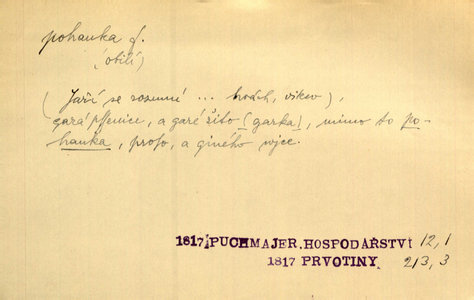 pohanka f.
(obilí)
(Jaří se rozumí ... hrách, vikev),
garápssenice, a garé žito (garka), mimo to po-
hanka, proso, a giného wjce.
1817 PUCHMAJER. HOSPODÁŘSTVÍ 12,1
1817 PRVOTINY 213,3